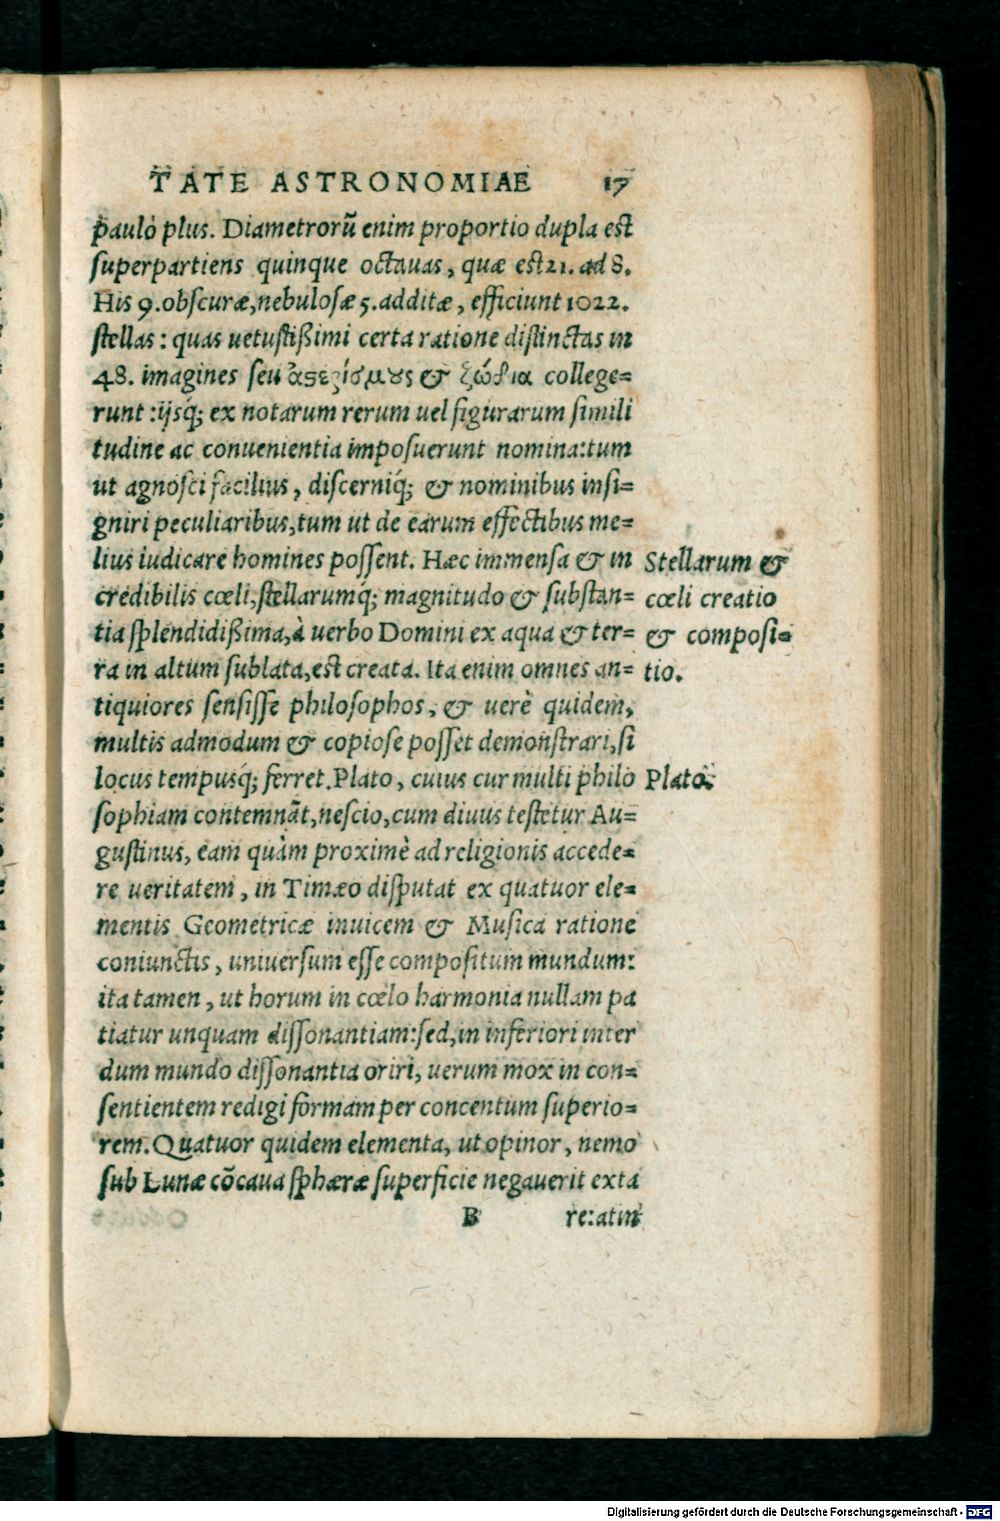 TATE ASTRONOMIAE 17
paulò plus. Diametrorũ enim proportio dupla est
superpartiens quinque octauas, quæ est 21. ad 8.
His 9. obscuræ, nebulosæ 5. additæ, efficiunt 1022.
stellas: quas uetustißimi certa ratione distinctas in
48. imagines seu ἀστερίσμους & ζώδια college=
runt: ijsq́; ex notarum rerum uel figurarum simili
tudine ac conuenientia imposuerunt nomina: tum
ut agnosci facilius, discerniq́; & nominibus insi=
gniri peculiaribus, tum ut de earum effectibus me=
lius iudicare homines possent. Hæc immensa & in
credibilis cœli, stellarumq́; magnitudo & substan=
tia splendidißima, à uerbo Domini ex aqua & ter=
ra in altum sublata, est creata. Ita enim omnes an=
tiquiores sensisse philosophos, & uerè quidem,
multis admodum & copiose posset demonstrari, si
locus tempusq́; ferret. Plato, cuius cur multi philo
sophiam contemnãt, nescio, cum diuus testetur Au=
gustinus, eam quàm proximè ad religionis accede=
re ueritatem, in Timæo disputat ex quatuor ele=
mentis Geometricæ inuicem & Musica ratione
coniunctis, uniuersum esse compositum mundum:
ita tamen, ut horum in cœlo harmonia nullam pa
tiatur unquam dissonantiam: sed, in inferiori inter
dum mundo dissonantia oriri, uerum mox in con=
sentientem redigi formam per concentum superio=
rem. Quatuor quidem elementa, ut opinor, nemo
sub Lunæ cõcaua sphæræ superficie negauerit exta
B re: atin
Stellarum &
cœli creatio
& composi=
tio.
Plato.
Digitalisierung gefördert durch die Deutsche Forschungsgemeinschaft - DFG